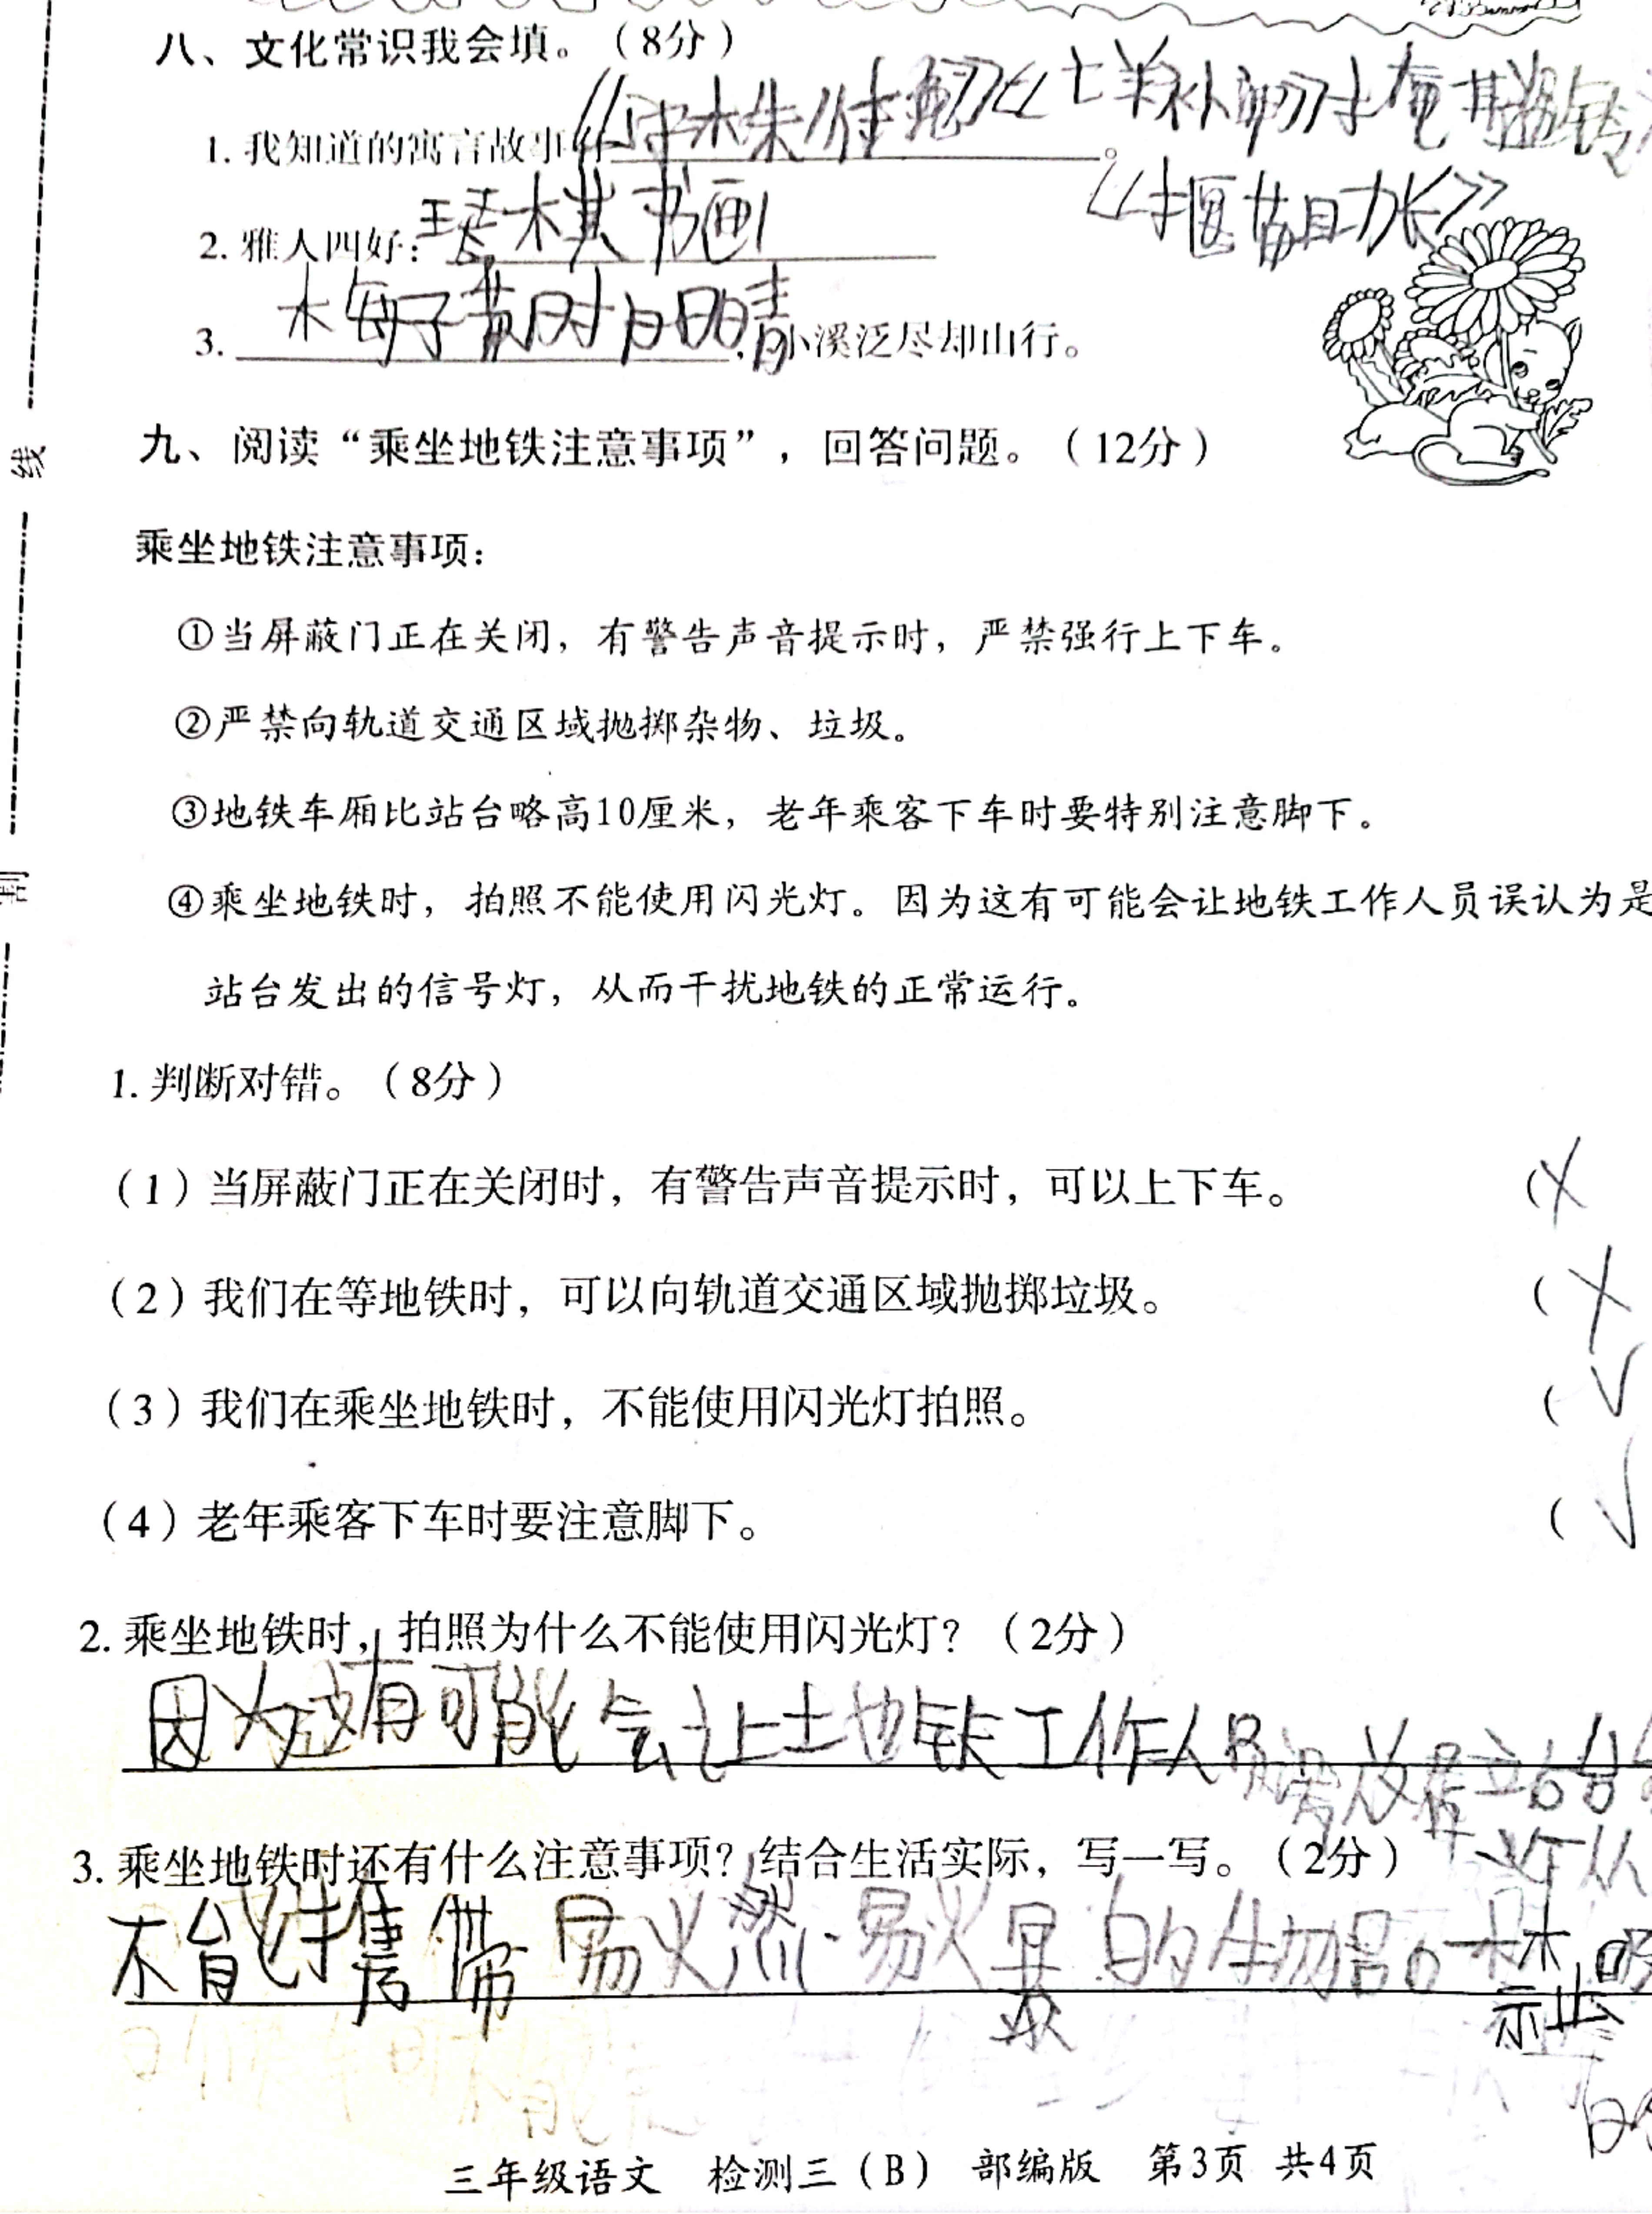 八、文化常识我会填。（8分）
1. 我知道的寓言故事有《守株待兔》《亡羊补牢》《掩耳盗铃
《揠苗助长》
2. 雅人四好：琴棋书画
3. 梅子黄时日日晴，小溪泛尽却山行。
九、阅读“乘坐地铁注意事项”，回答问题。（12分）
乘坐地铁注意事项：
①当屏蔽门正在关闭，有警告声音提示时，严禁强行上下车。
②严禁向轨道交通区域抛掷杂物、垃圾。
③地铁车厢比站台略高10厘米，老年乘客下车时要特别注意脚下。
④乘坐地铁时，拍照不能使用闪光灯。因为这有可能会让地铁工作人员误认为是
站台发出的信号灯，从而干扰地铁的正常运行。
1. 判断对错。（8分）
（1）当屏蔽门正在关闭时，有警告声音提示时，可以上下车。（×
（2）我们在等地铁时，可以向轨道交通区域抛掷垃圾。（×
（3）我们在乘坐地铁时，不能使用闪光灯拍照。（√
（4）老年乘客下车时要注意脚下。（√
2. 乘坐地铁时，拍照为什么不能使用闪光灯？（2分）
因为这有可能会让地铁工作人员
3. 乘坐地铁时还有什么注意事项？结合生活实际，写一写。（2分）
不能携带易燃易爆的物品。禁止吸
三年级语文 检测三（B） 部编版 第3页 共4页
线
割